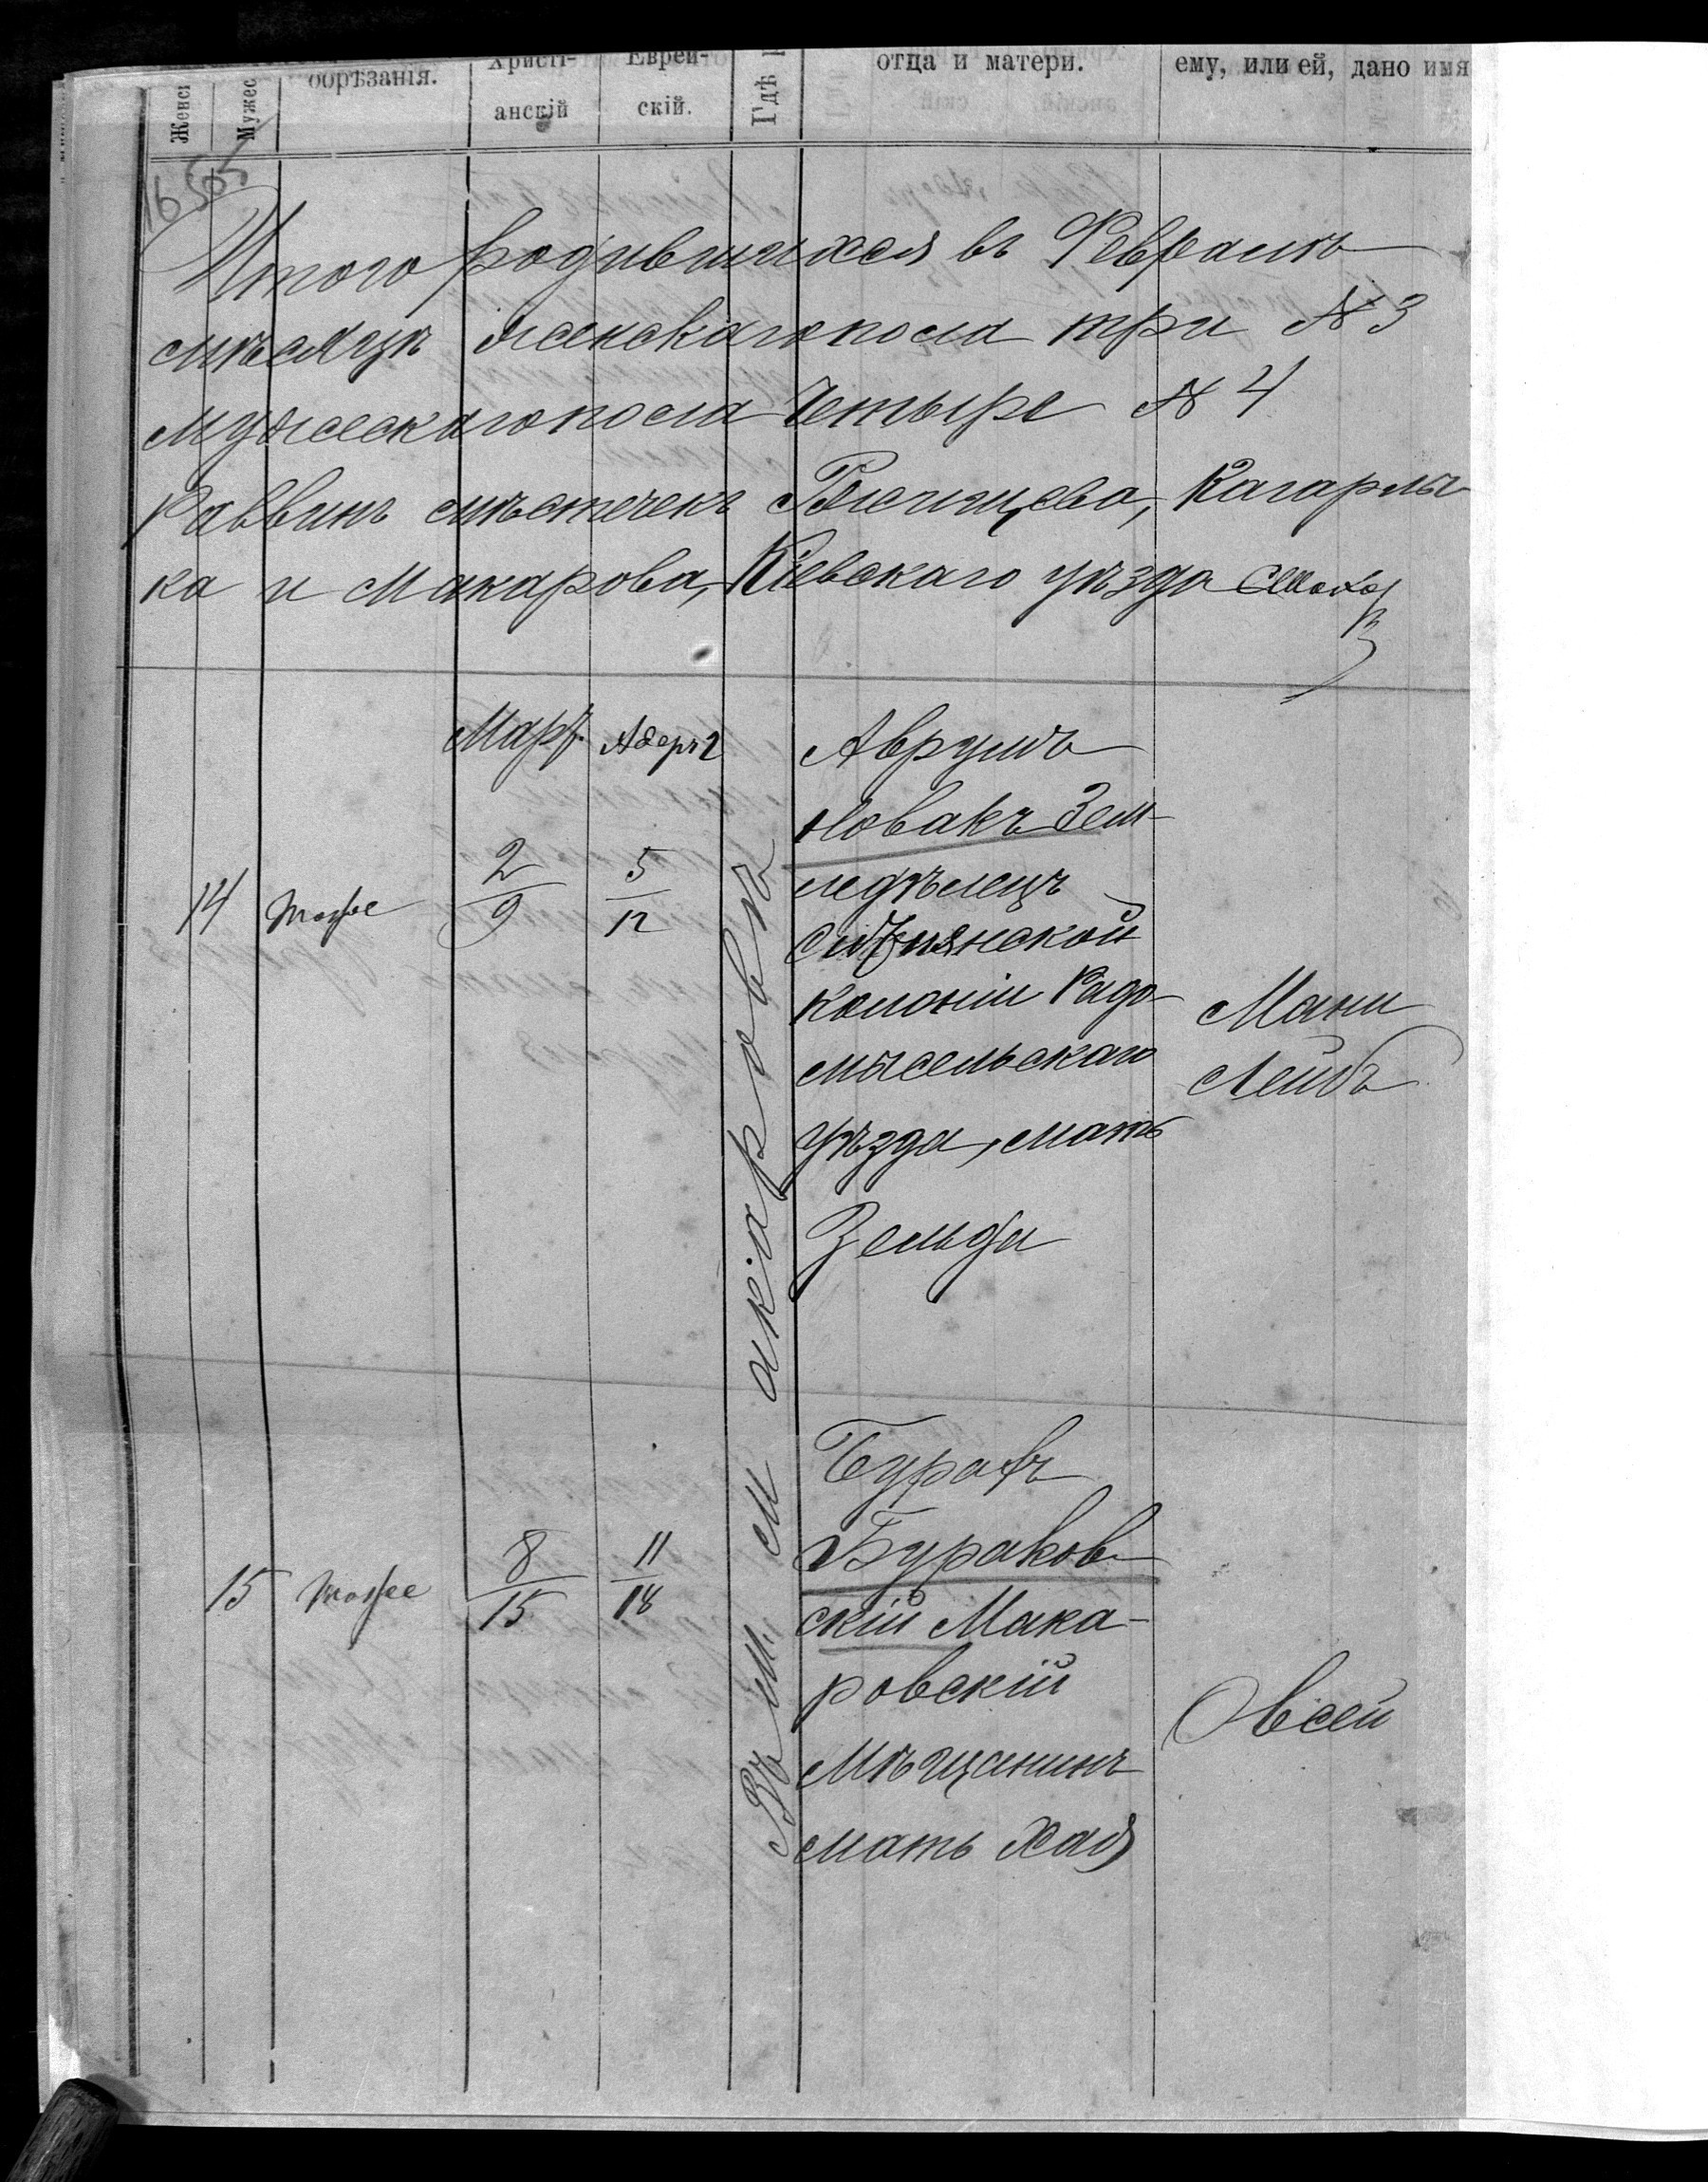 Женс Мужес обрѣзанія. Христі- анскій Еврей- скій. Гдѣ отца и матери. ему, или ей, дано имя
1655
Итого родившихся въ Февралѣ
мѣсяцѣ женскаго пола три № 3
мужескаго пола четыре № 4
Раввинъ мѣстечекъ Ржищева, Кагарлы-
ка и Макарова, Кіевскаго уѣзда
Март. Адеръ 2
14 тоже 2/9 5/12
Аврумъ
Новакъ Зем-
ледѣлецъ
колоніи Радо-
мысельскаго
уѣзда, мать
Зельда
Мани
Лейбъ
Въ м. Макаровѣ
15 тоже 8/15 11/18
Бураковъ-
скій Мака-
ровскій
Мѣщанинъ
мать Хая
Овсей